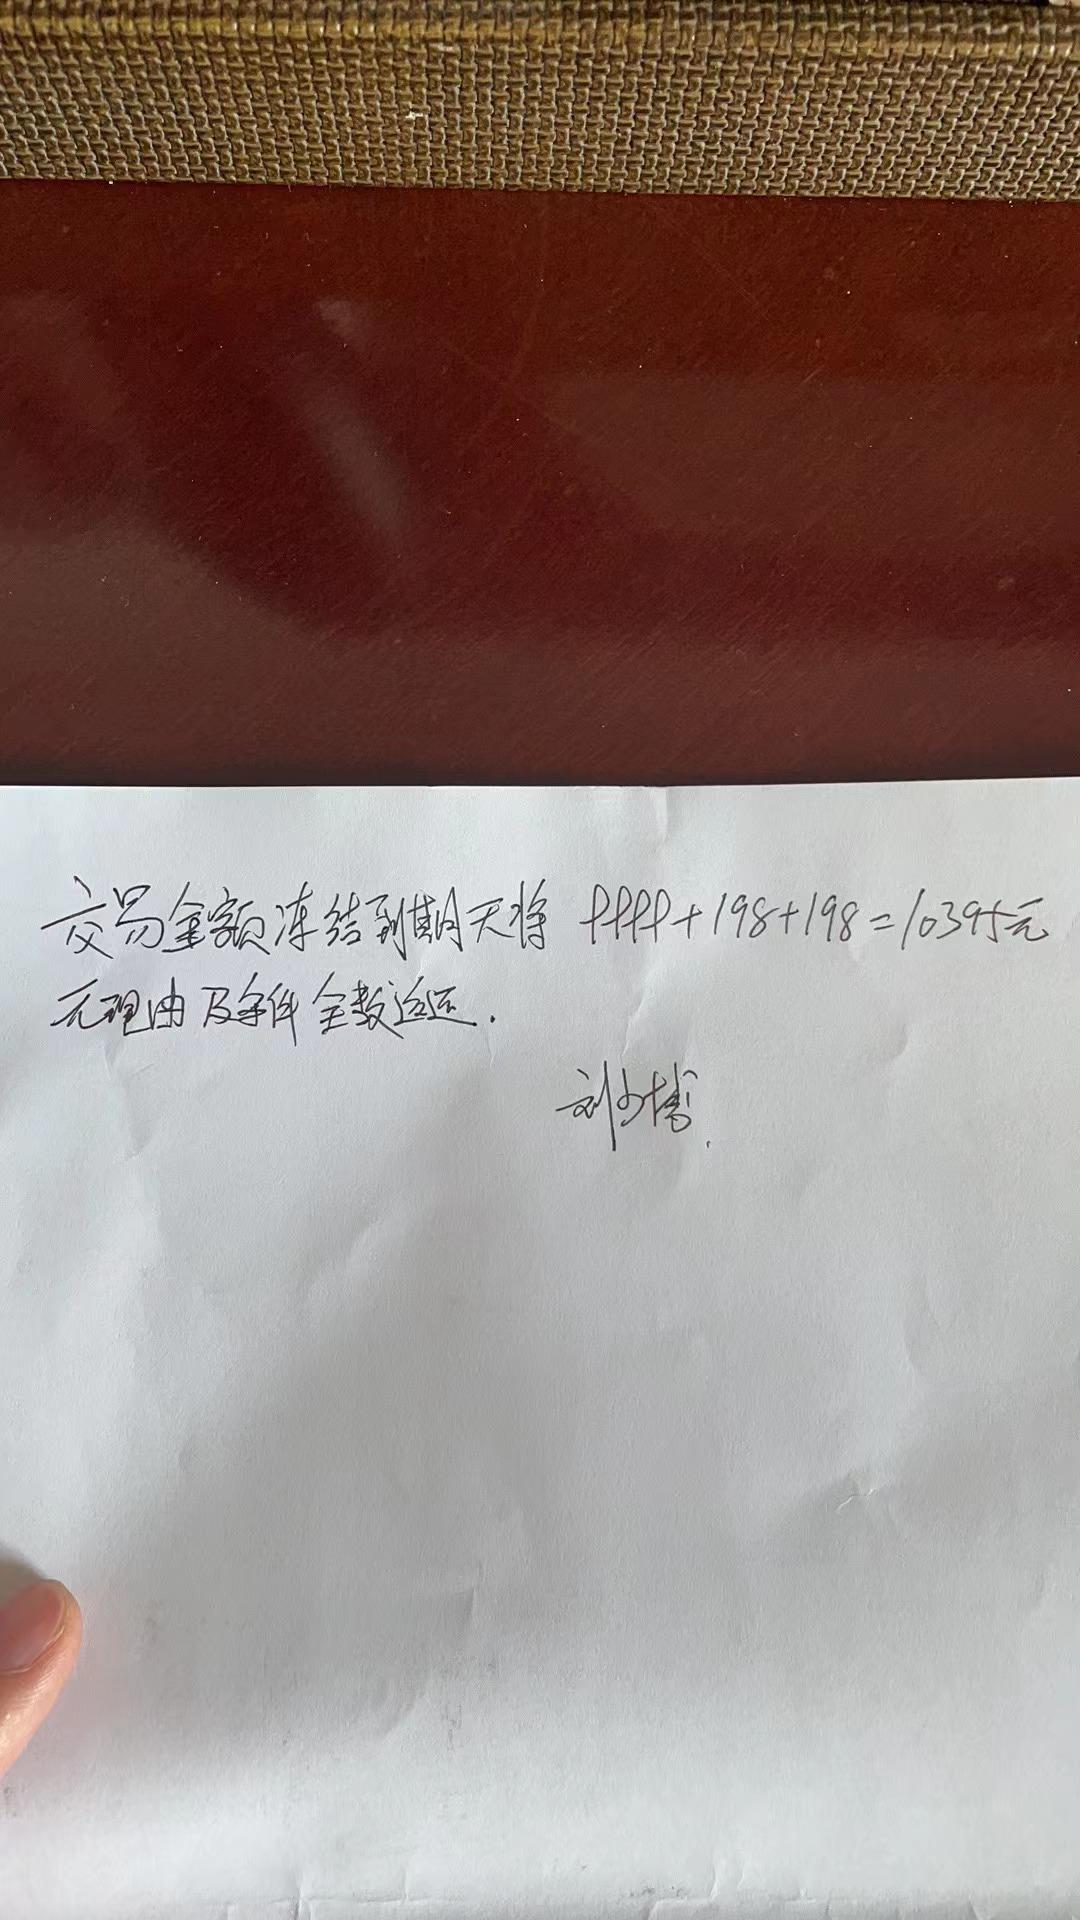 交易金额冻结到期天将 9999+198+198=10395元
无理由及条件全数返还.
刘少博.